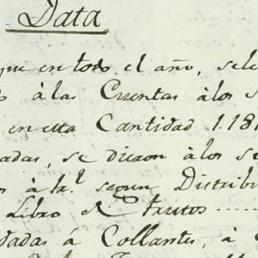 Data
que en todo el año, sele
à las Cuentas àlos s
en esta Cantidad 1.18
adas, se dieron àlos se
os à la segun Distribu
Libro de frutos
dadas á Collantes, á